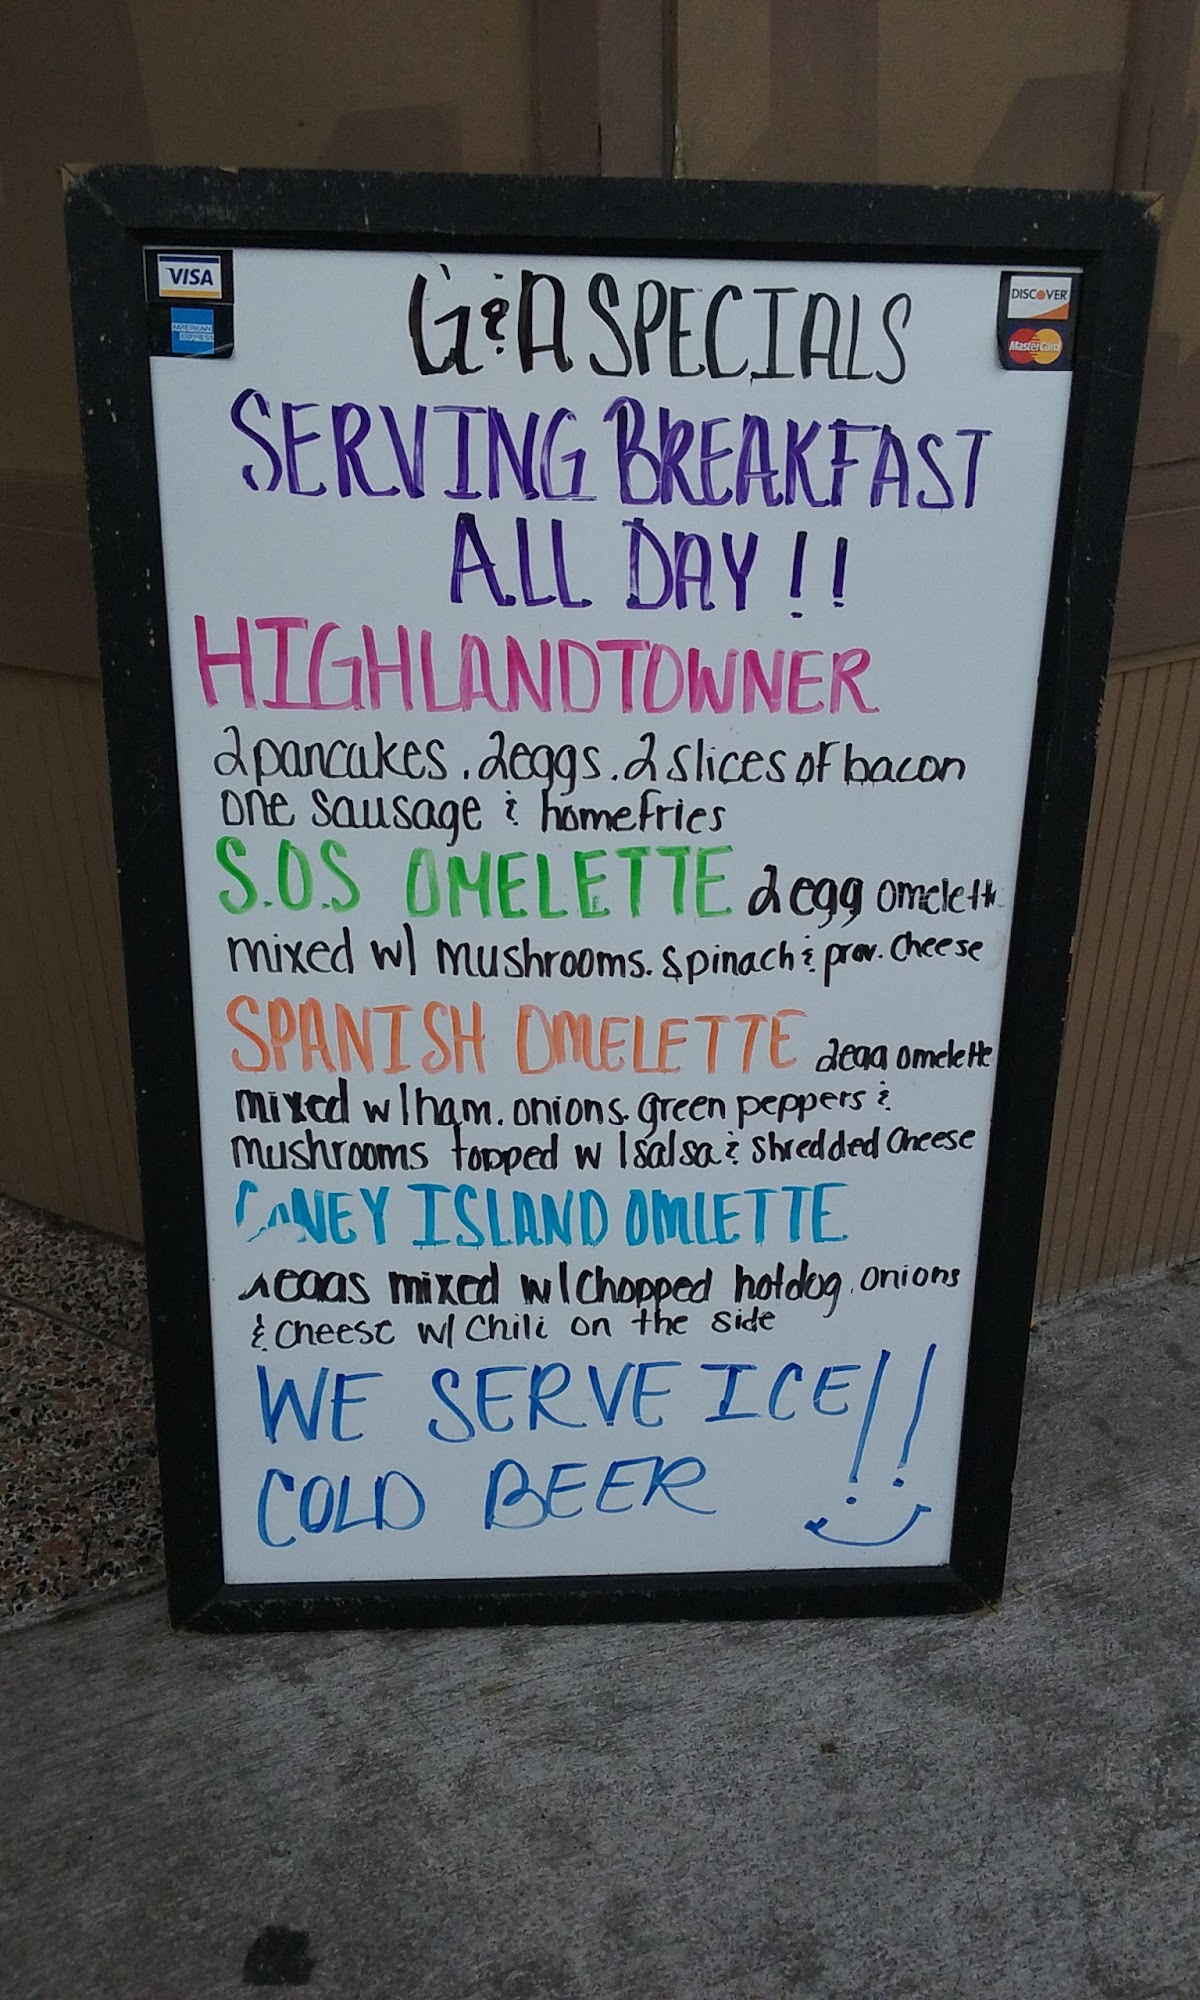 VISA
AMERICAN EXPRESS
DISCOVER
MasterCard
G & A SPECIALS
SERVING BREAKFAST
ALL DAY !!
HIGHLANDTOWNER
2 pancakes. 2 eggs. 2 slices of bacon
one sausage & homefries
S.O.S OMELETTE 2 egg omelett
mixed w/ mushrooms. spinach & prov. cheese
SPANISH OMELETTE 2 egg omelette
mixed w/ ham. onions. green peppers &
mushrooms topped w/ salsa & shredded cheese
CONEY ISLAND OMLETTE
2 eggs mixed w/ chopped hotdog. onions
& cheese w/ chili on the side
WE SERVE ICE!!
COLD BEER